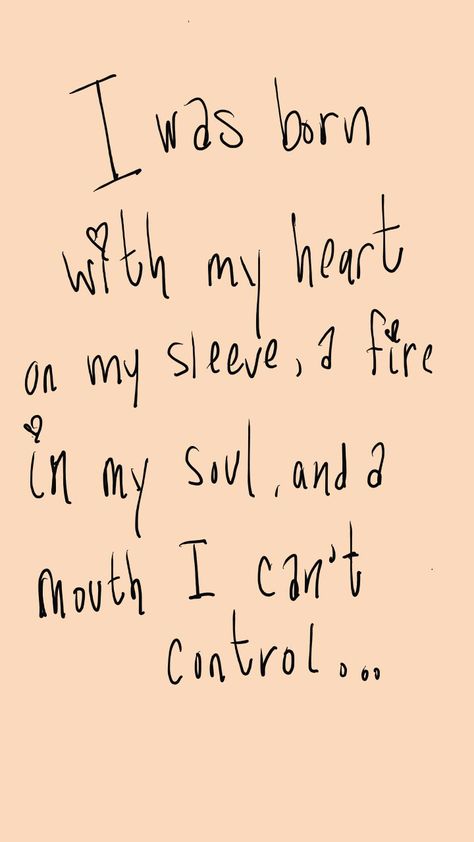 I was born
with my heart
on my sleeve, a fire
in my soul, and a
mouth I can't
control...